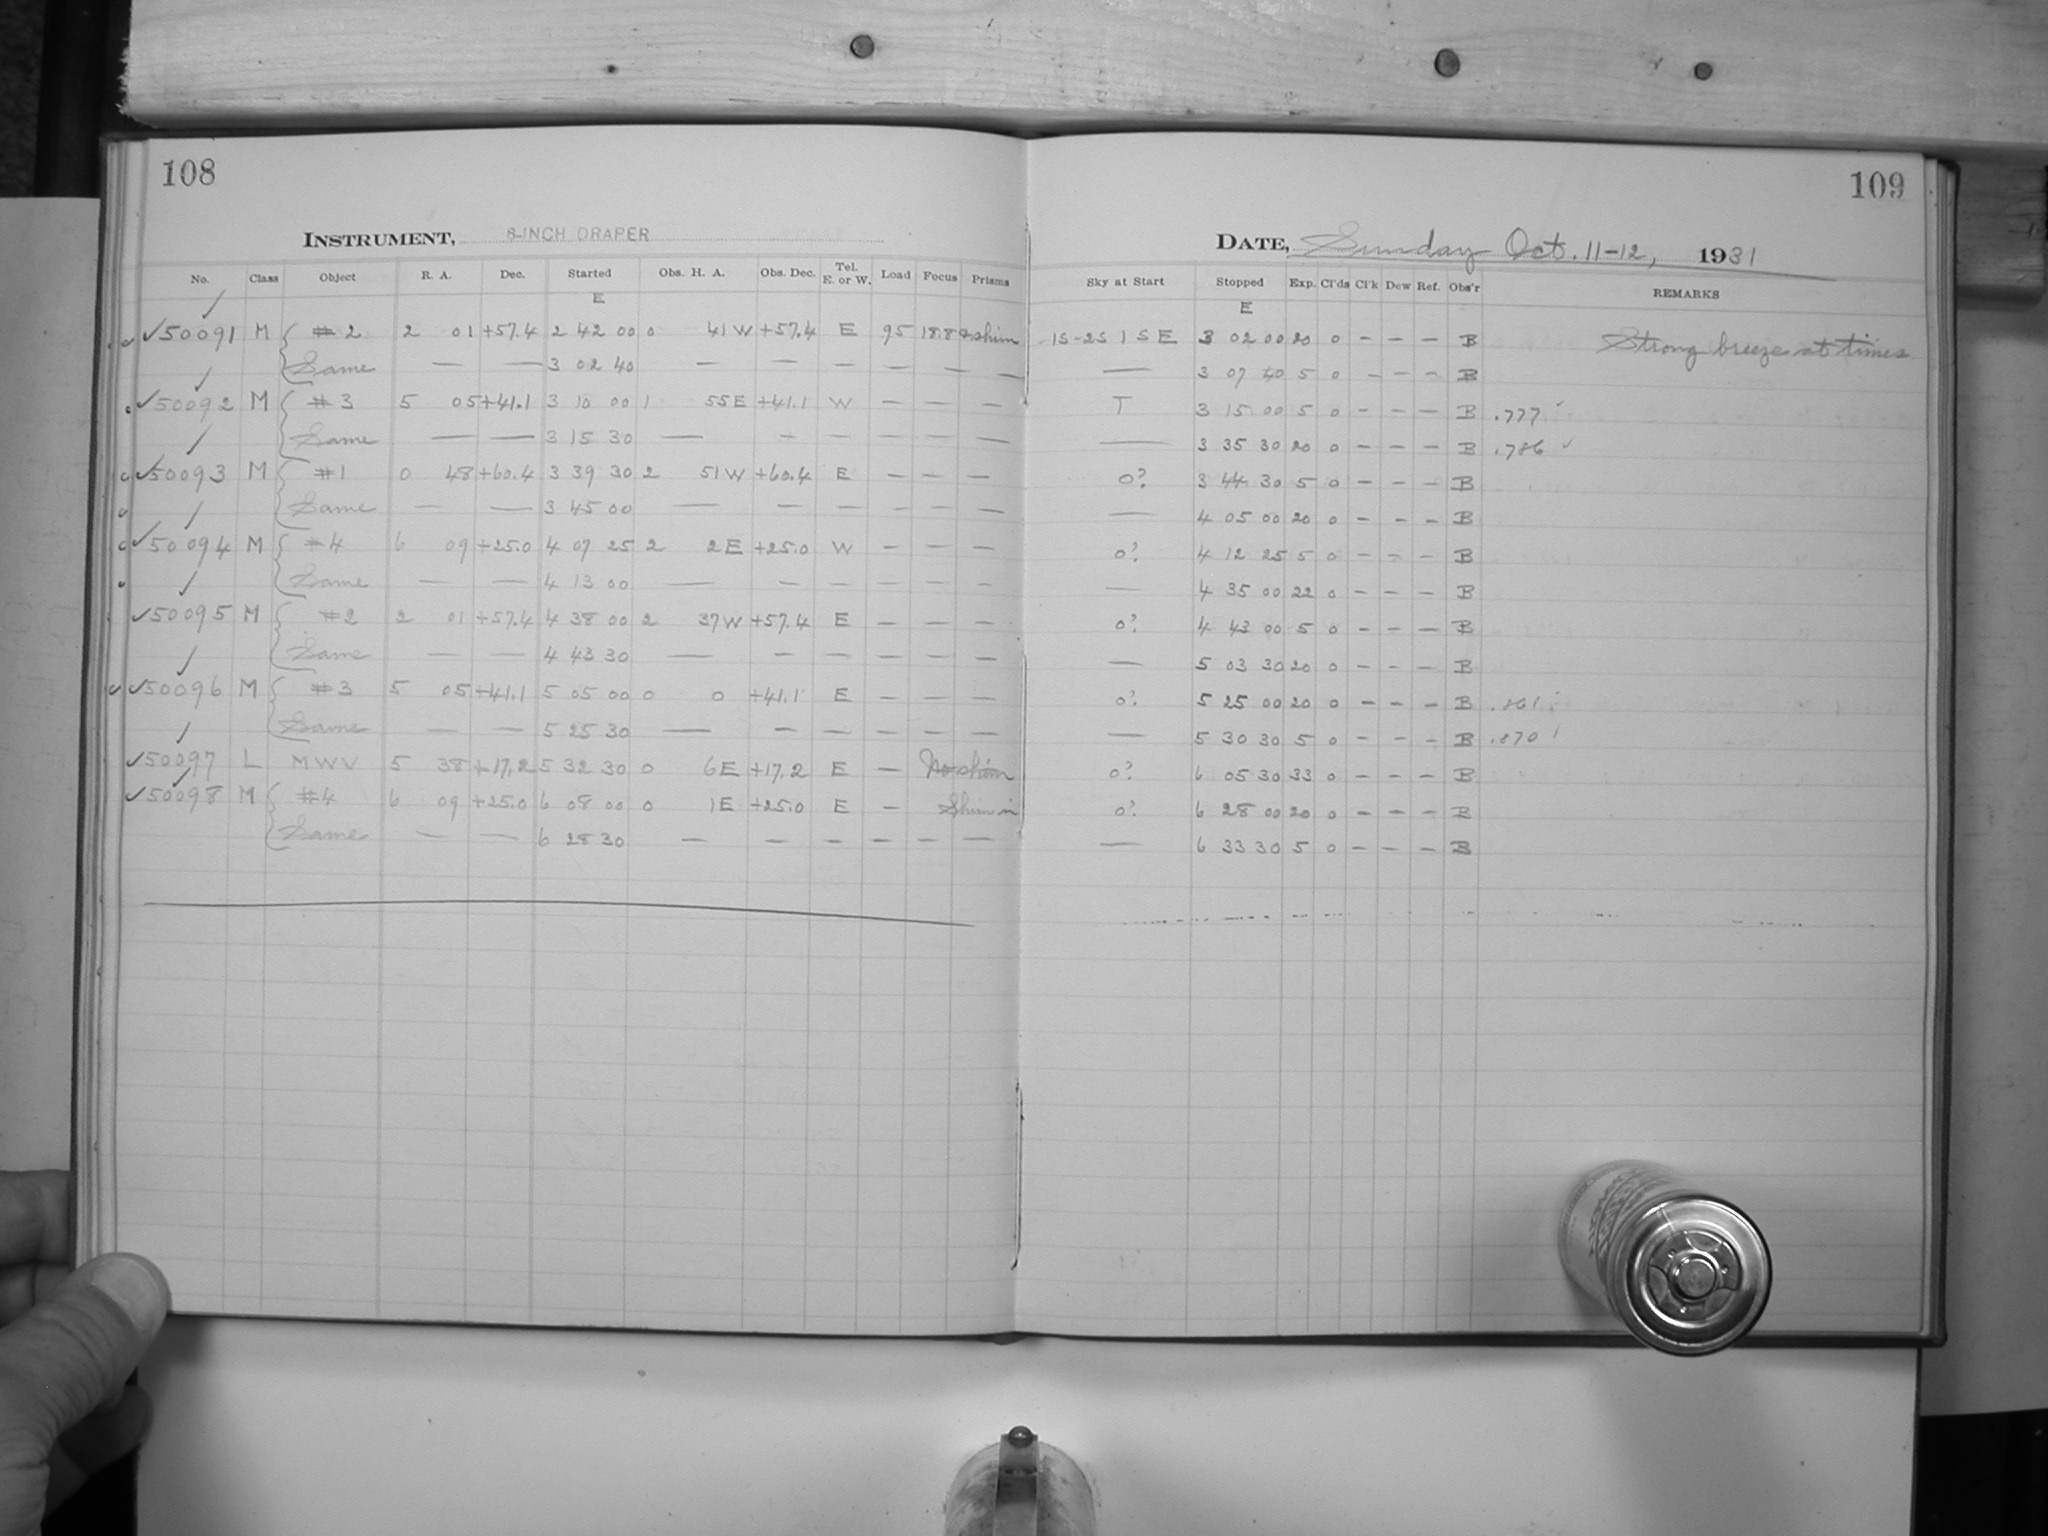 108
109
INSTRUMENT, 8-INCH DRAPER
DATE, Sunday Oct. 11-12, 1931
No. Class Object R. A. Dec. Started Obs. H. A. Obs. Dec. Tel. E. or W. Load Focus Prisms Sky at Start Stopped Exp. Cl'ds Cl'k Dew Ref. Obs'r REMARKS
E E
✓50091 M { #2 2 01 +57.4 2 42 00 0 41 W +57.4 E 95 18.8 + shim 15-25 1 S E 3 02 00 20 0 - - - B Strong breeze at times
Same — — 3 02 40 — — — — — — — 3 07 40 5 0 - - - B
✓50092 M { #3 5 05 +41.1 3 10 00 1 55 E +41.1 W — — — T 3 15 00 5 0 - - - B .777
Same — — 3 15 30 — — — — — — — 3 35 30 20 0 - - - B .786 ✓
✓50093 M { #1 0 48 +60.4 3 39 30 2 51 W +60.4 E — — — 0? 3 44 30 5 0 - - - B
Same — — 3 45 00 — — — — — — — 4 05 00 20 0 - - - B
✓50094 M { #4 6 09 +25.0 4 07 25 2 2 E +25.0 W — — — 0? 4 12 25 5 0 - - - B
Same — — 4 13 00 — — — — — — — 4 35 00 22 0 - - - B
✓50095 M { #2 2 01 +57.4 4 38 00 2 37 W +57.4 E — — — 0? 4 43 00 5 0 - - - B
Same — — 4 43 30 — — — — — — — 5 03 30 20 0 - - - B
✓50096 M { #3 5 05 +41.1 5 05 00 0 0 +41.1 E — — — 0? 5 25 00 20 0 - - - B .861
Same — — 5 25 30 — — — — — — — 5 30 30 5 0 - - - B .870
✓50097 L MWV 5 38 +17.2 5 32 30 0 6 E +17.2 E — No shim 0? 6 05 30 33 0 - - - B
✓50098 M { #4 6 09 +25.0 6 08 00 0 1 E +25.0 E — Shim in 0? 6 28 00 20 0 - - - B
Same — — 6 28 30 — — — — — — — 6 33 30 5 0 - - - B